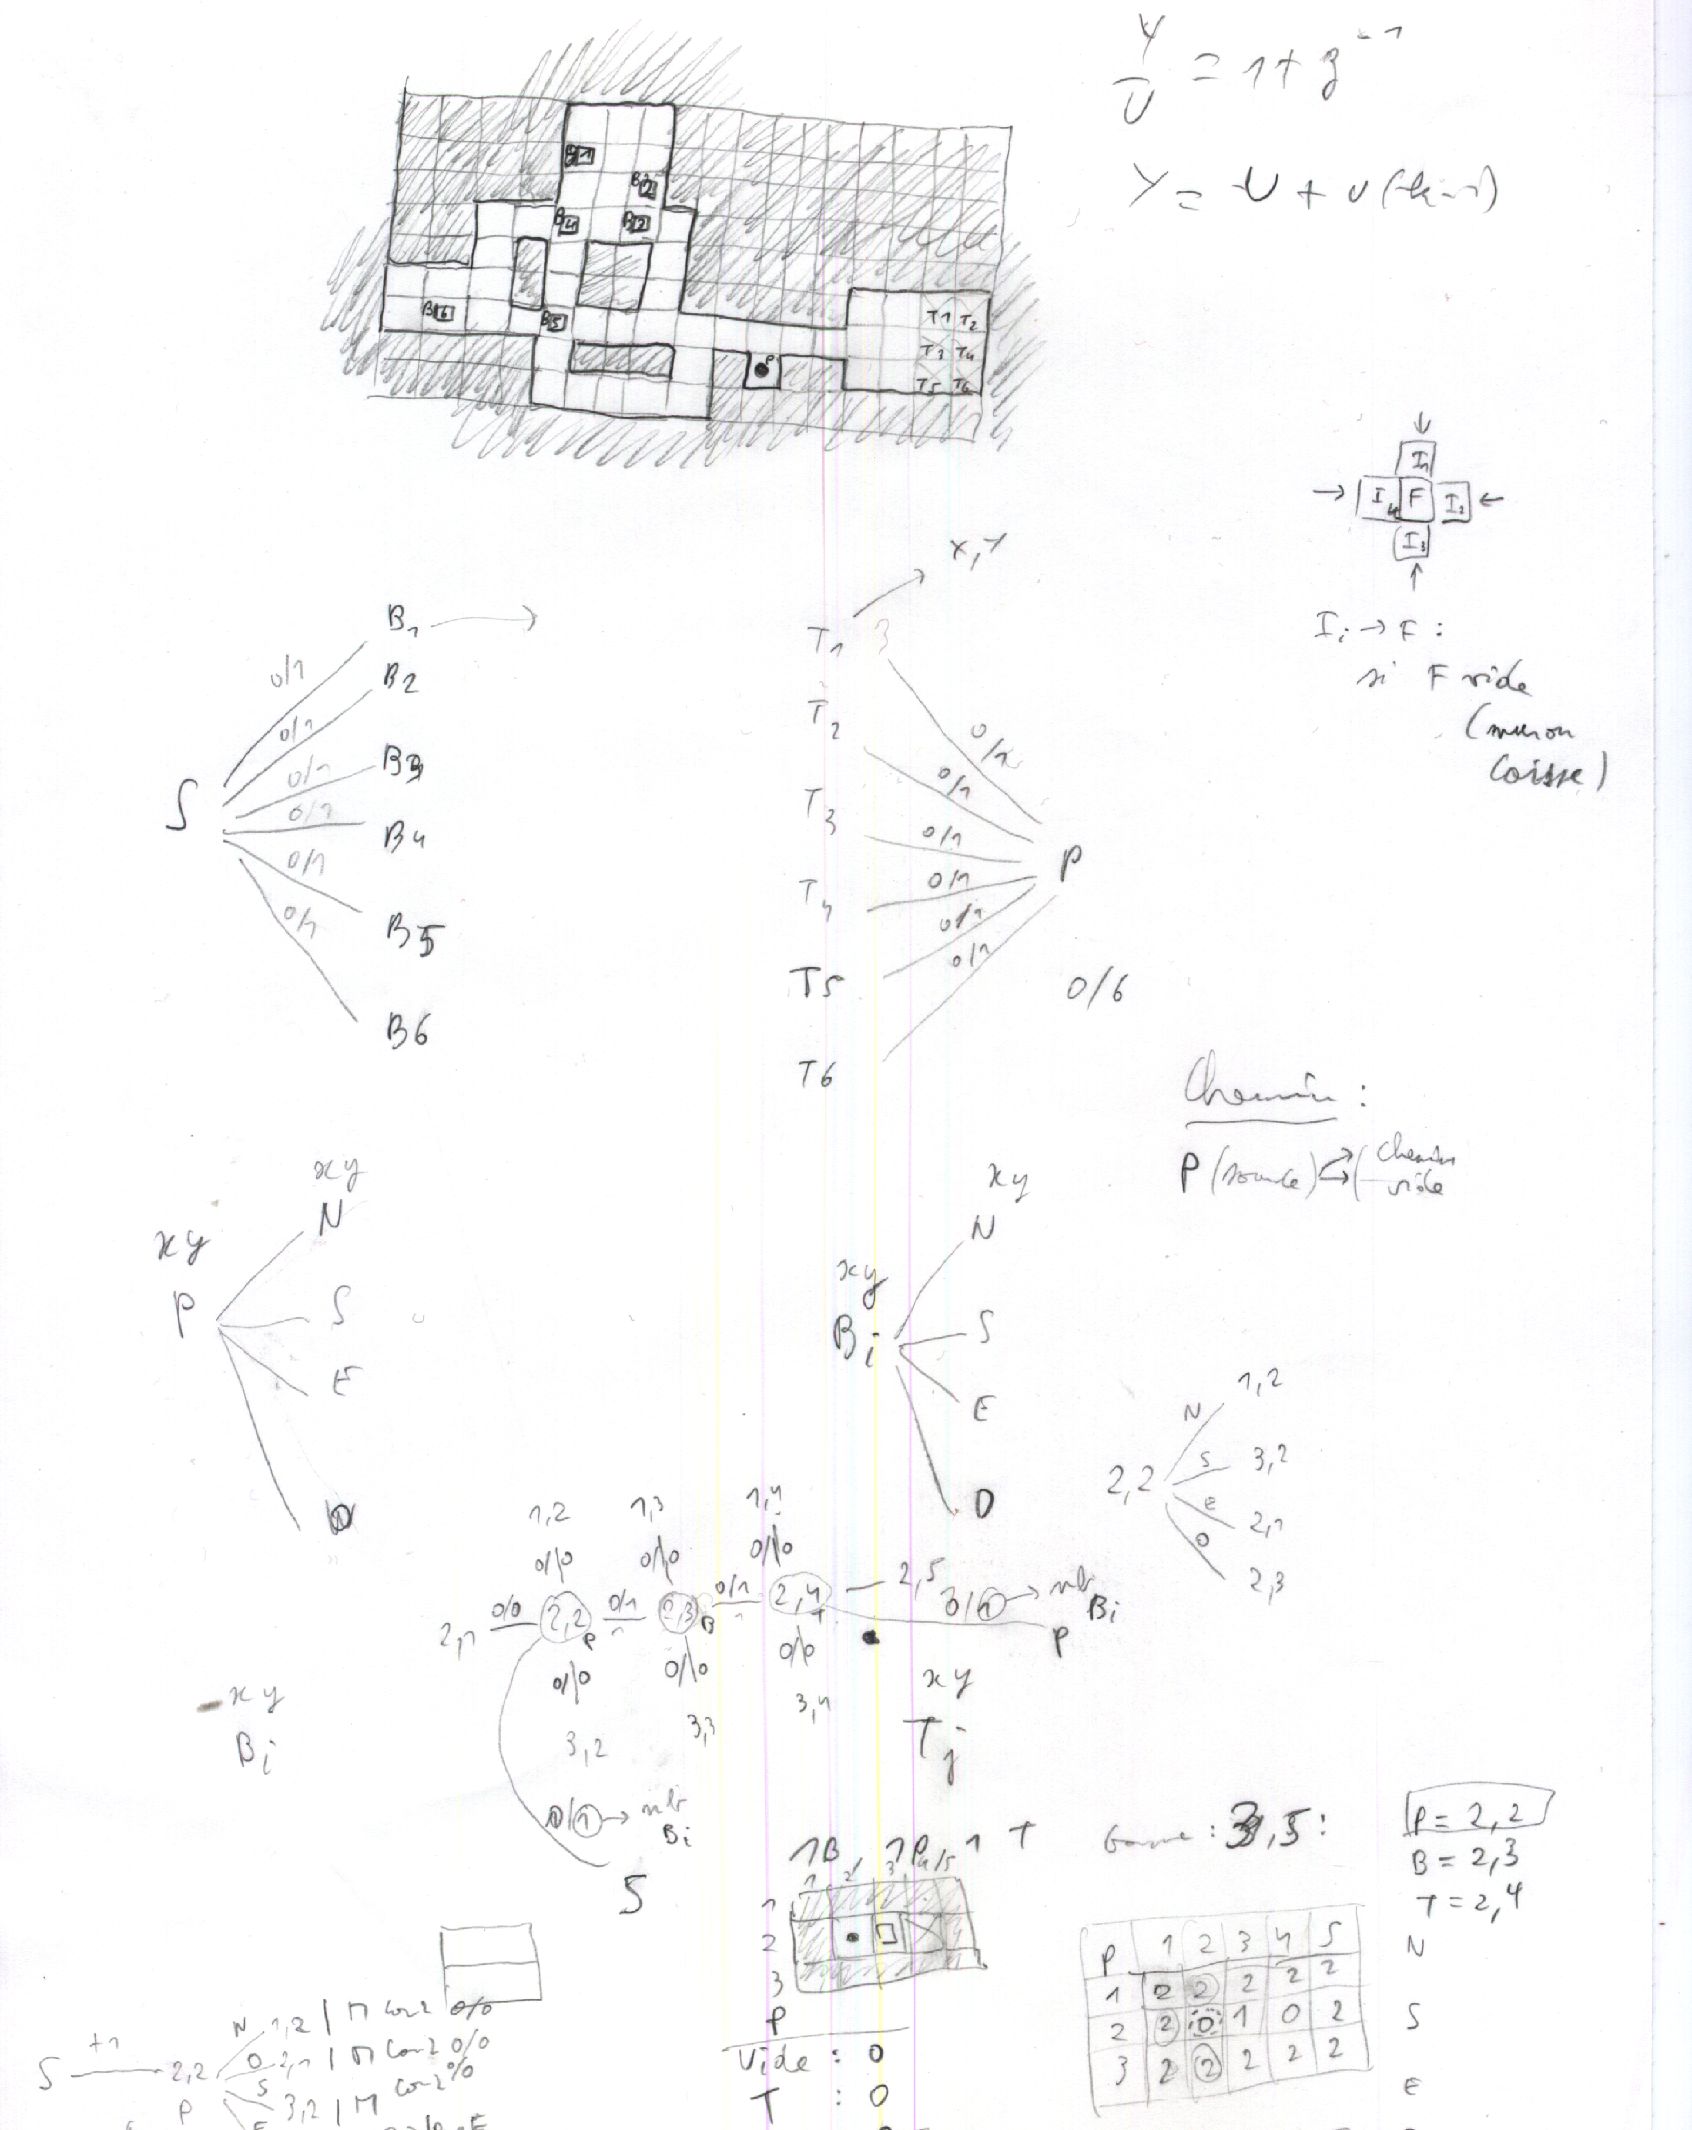 Y
U
= 1 + z⁻¹
Y = U + U(k-1)
B1
B2
B4
B2
B6
B5
P
T1 T2
T3 T4
T5 T6
I1
I4 F I2
I3
x, y
I i → F :
si F vide
(mur ou
caisse)
B1
B2
B3
B4
B5
B6
S
0/1
0/1
0/1
0/1
0/1
0/1
T1 3
T2
T3
T4
T5
T6
0/1
0/1
0/1
0/1
0/1
0/1
P
0/6
Chemin :
P (source) (chemin
vide
xy
P
xy
N
S
E
O
xy
Bi
xy
N
S
E
O
2,2
N 1,2
S 3,2
E 2,1
O 2,3
1,2 1,3 1,4
0/0 0/0 0/0
2,1 0/0 2,2 P 0/1 2,3 B 0/1 2,4 T 2,5
0/1 → nb
Bi
P
0/0 0/0 0/0
3,2 3,3 3,4
0/1 → nb
Bi
S
xy
Bi
xy
Tj
1B, 1P, 1 T
1 2 3 4 5
1
2
3
P
Vide : 0
T : 0
: 3,5 :
P = 2,2
B = 2,3
T = 2,4
P 1 2 3 4 5
1 2 2 2 2 2
2 2 0 1 0 2
3 2 2 2 2 2
N
S
E
S +1 2,2
P
N 1,2 | M Con 2 0/0
O 2,1 | M Con 2 0/0
S 3,2 | M Con 2 0/0
E